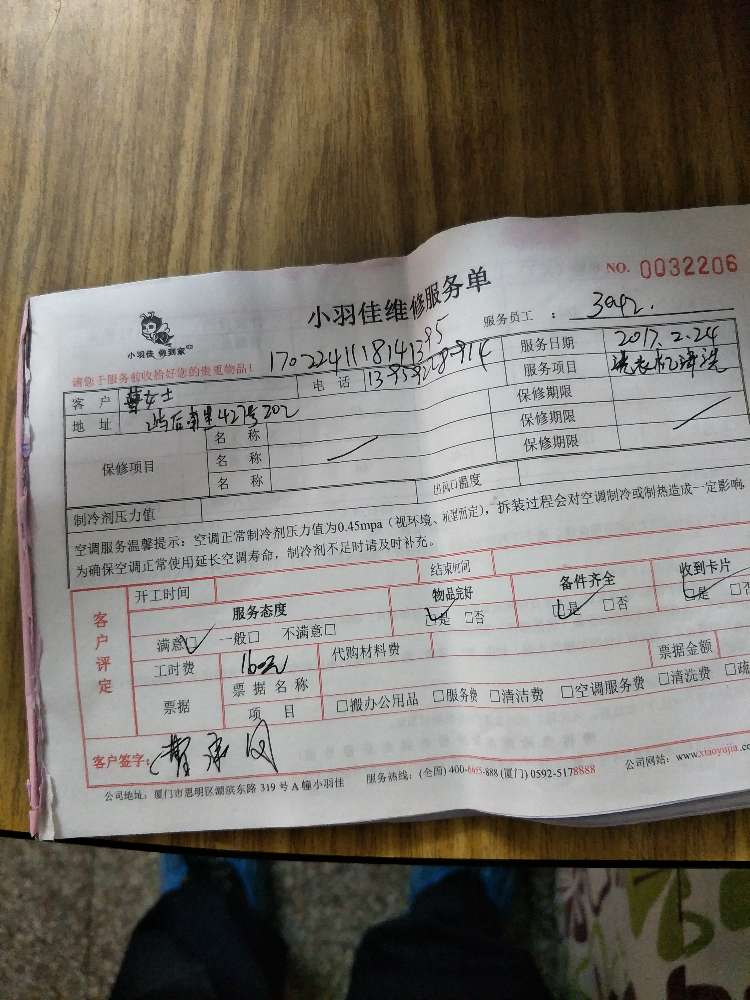 NO. 0032206
小羽佳维修服务单
小羽佳 帮到家
服务员工 : 3992.
请您于服务前收拾好您的贵重物品!
1702241118141395
客户 曹女士 电话 服务日期 2017.2.24
地址 服务项目 洗衣机清洗
保修项目 名称 保修期限
名称 保修期限
名称 保修期限
制冷剂压力值 出风口温度
空调服务温馨提示:空调正常制冷剂压力值为0.45mpa(视环境、机型而定),拆装过程会对空调制冷或制热造成一定影响,
为确保空调正常使用延长空调寿命,制冷剂不足时请及时补充。
客户评定
开工时间 结束时间
服务态度 物品完好 备件齐全 收到卡片
满意□ 一般□ 不满意□ □是 □否 □是 □否 □是 □否
工时费 160元 代购材料费 票据金额
票据 票据名称
项目 □搬办公用品 □服务费 □清洁费 □空调服务费 □清洗费
客户签字:
公司地址:厦门市思明区湖滨东路 319 号 A 幢小羽佳 服务热线:(全国) 400-6655-888 (厦门) 0592-5178888 公司网站:www.xiaoyujia.co